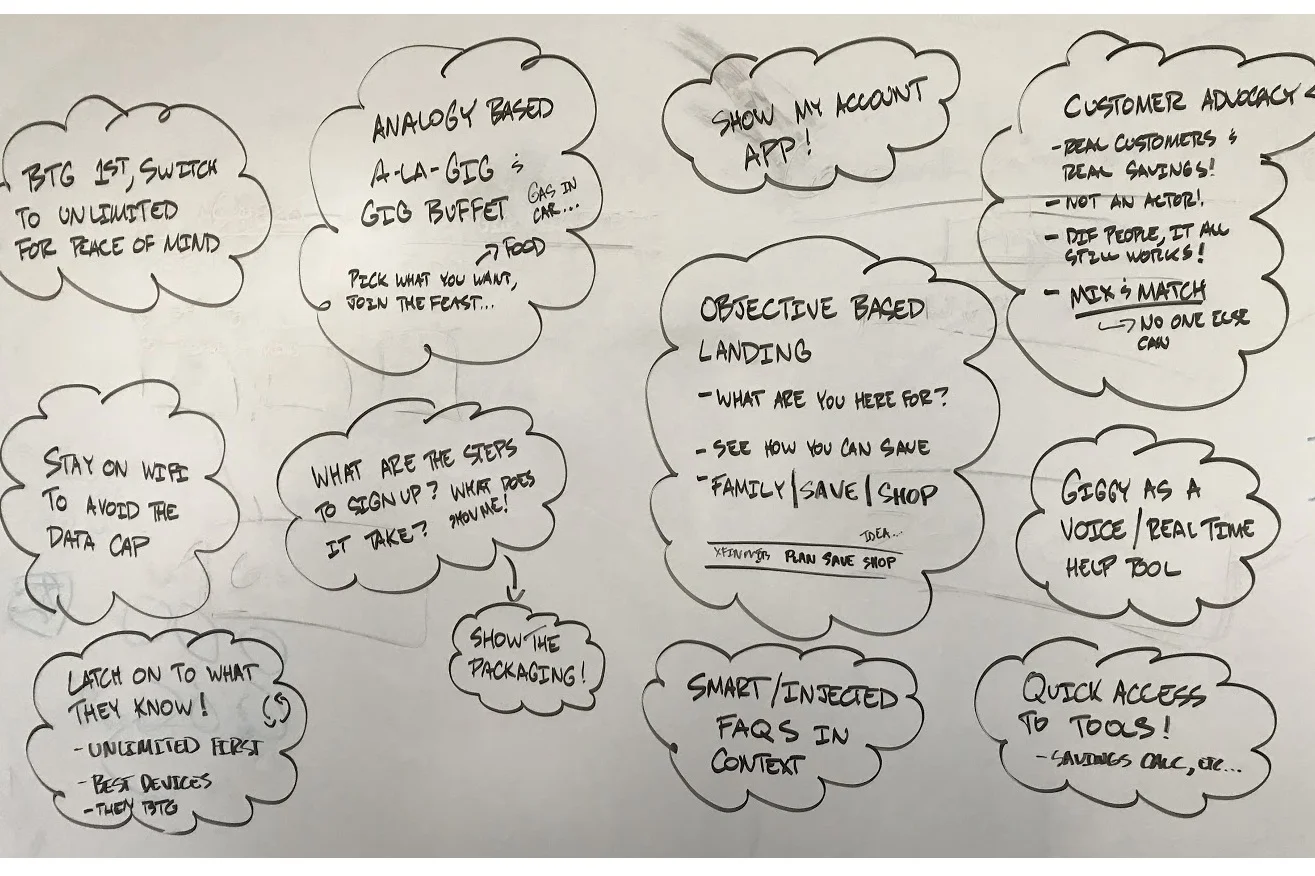 BTG 1ST, SWITCH
TO UNLIMITED
FOR PEACE OF MIND
ANALOGY BASED
A-LA-GIG &
GIG BUFFET
GAS IN
CAR...
FOOD
PICK WHAT YOU WANT,
JOIN THE FEAST...
SHOW MY ACCOUNT
APP!
CUSTOMER ADVOCACY
- REAL CUSTOMERS &
REAL SAVINGS!
- NOT AN ACTOR!
- DIF PEOPLE, IT ALL
STILL WORKS!
- MIX & MATCH
NO ONE ELSE
CAN
OBJECTIVE BASED
LANDING
- WHAT ARE YOU HERE FOR?
- SEE HOW YOU CAN SAVE
- FAMILY | SAVE | SHOP
IDEA...
PLAN SAVE SHOP
STAY ON WIFI
TO AVOID THE
DATA CAP
WHAT ARE THE STEPS
TO SIGN UP? WHAT DOES
IT TAKE? SHOW ME!
SHOW THE
PACKAGING!
GIGGY AS A
VOICE/REAL TIME
HELP TOOL
LATCH ON TO WHAT
THEY KNOW!
- UNLIMITED FIRST
- BEST DEVICES
- THEN BTG
SMART/INJECTED
FAQS IN
CONTEXT
QUICK ACCESS
TO TOOLS!
- SAVINGS CALC, ETC...